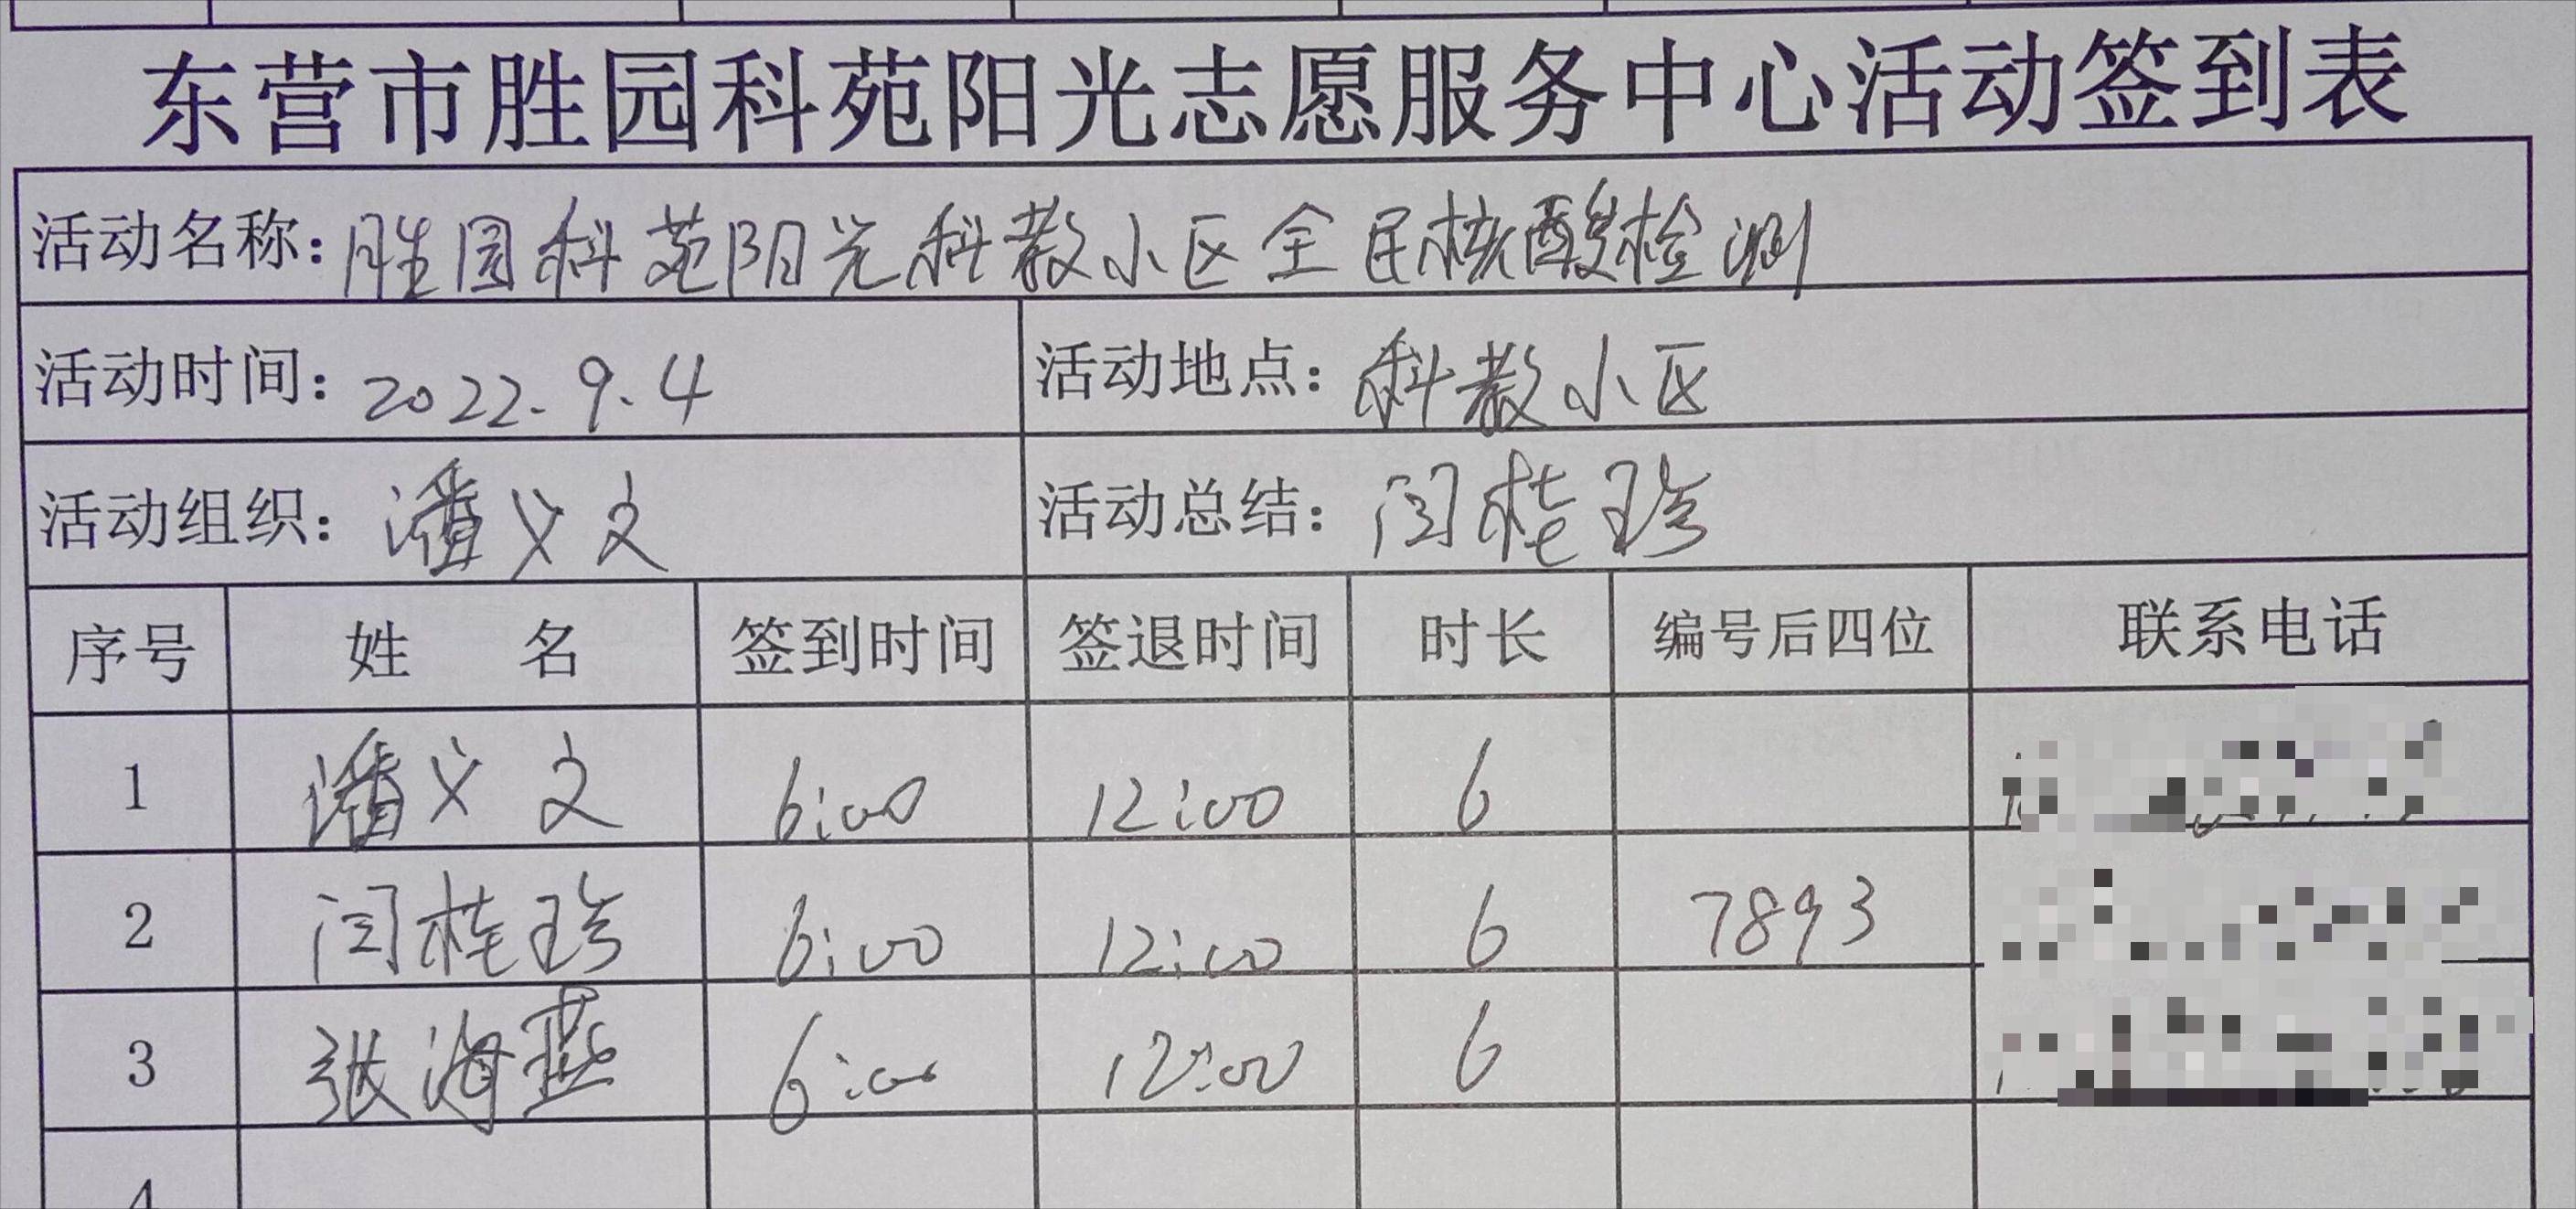 东营市胜园科苑阳光志愿服务中心活动签到表
活动名称：胜园科苑阳光科教小区全民核酸检测
活动时间：2022.9.4 活动地点：科教小区
活动组织：潘义文 活动总结：闫桂珍
序号 姓 名 签到时间 签退时间 时长 编号后四位 联系电话
1 潘义文 6:00 12:00 6
2 闫桂珍 6:00 12:00 6 7893
3 张海燕 6:00 12:00 6
4